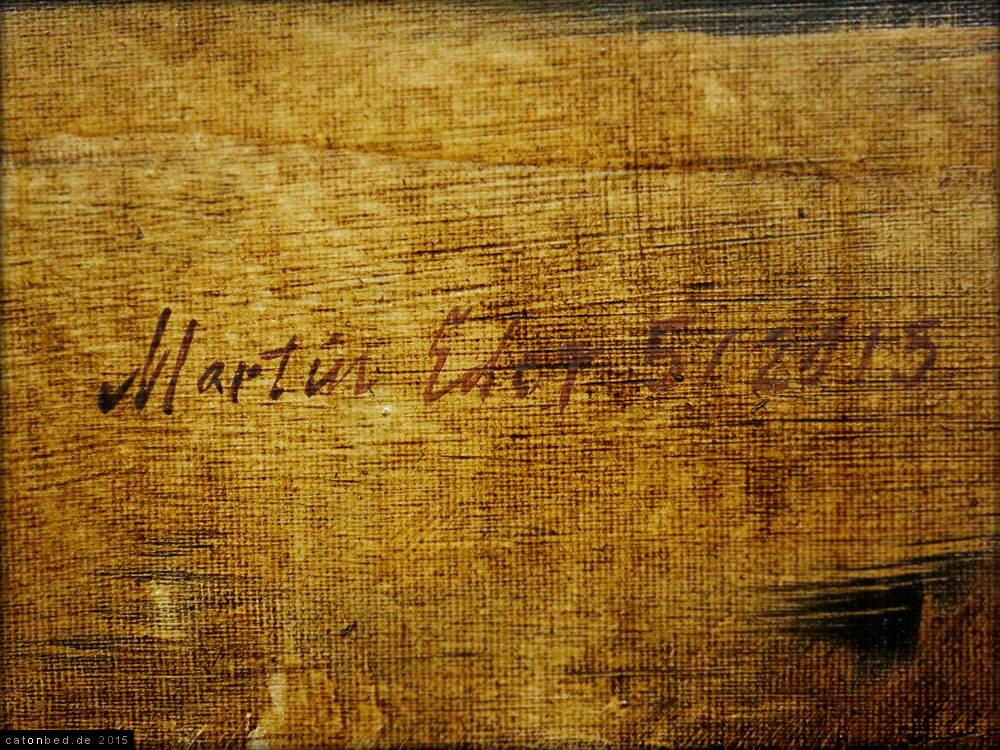 Martin Eder 5/2015
catonbed.de 2015